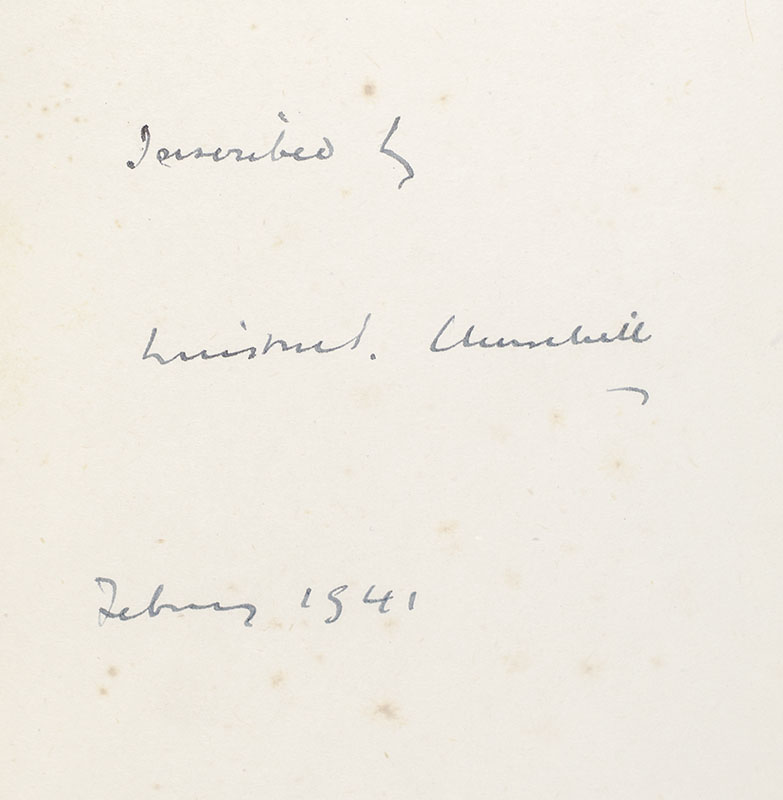 Inscribed by
Winston S. Churchill
February 1941